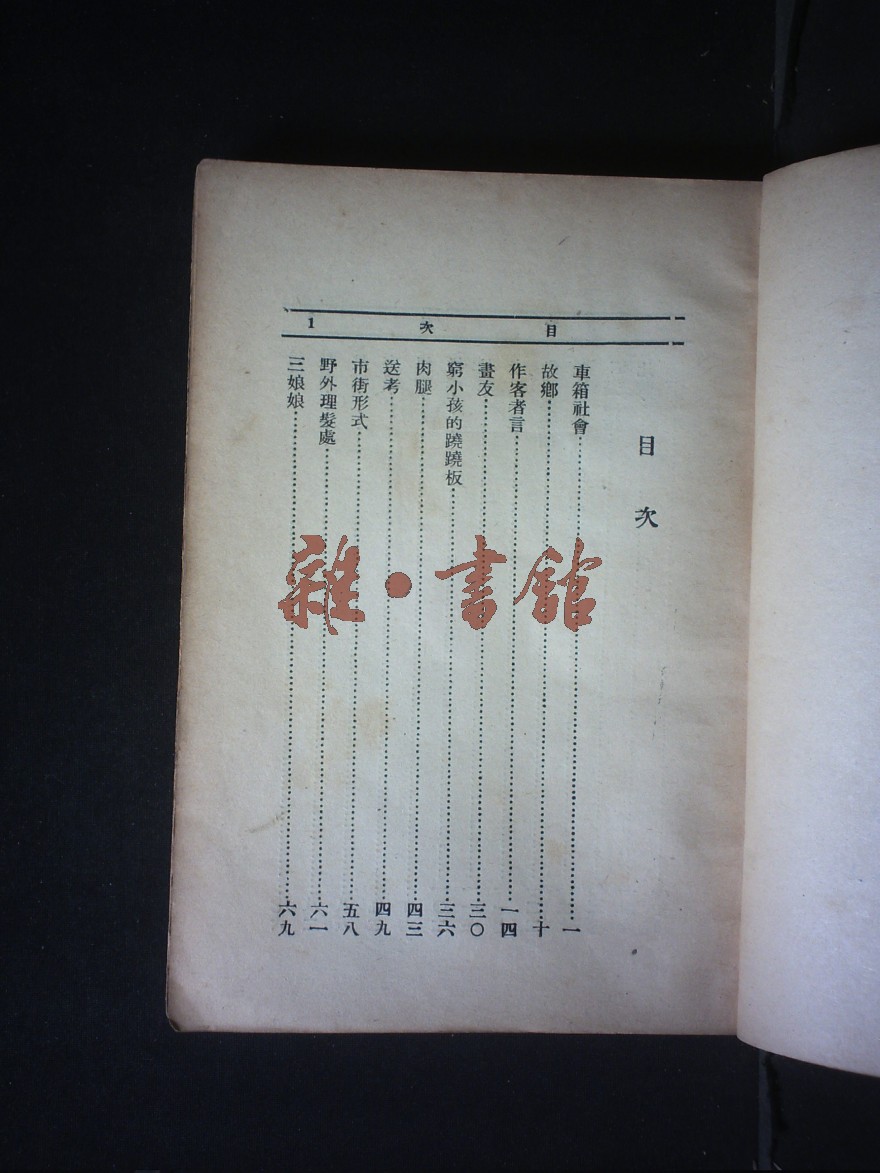 目次1
目次
車箱社會……一
故鄉……十
作客者言……一四
畫友……三〇
窮小孩的蹺蹺板……三六
肉腿……四三
送考……四九
市街形式……五八
野外理髮處……六一
三娘娘……六九
雜·書館